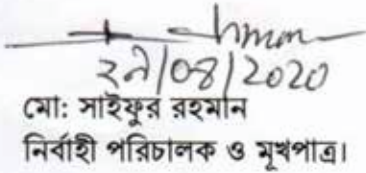 ২৯/০৪/2020
মো: সাইফুর রহমান
নির্বাহী পরিচালক ও মূখপাত্র।